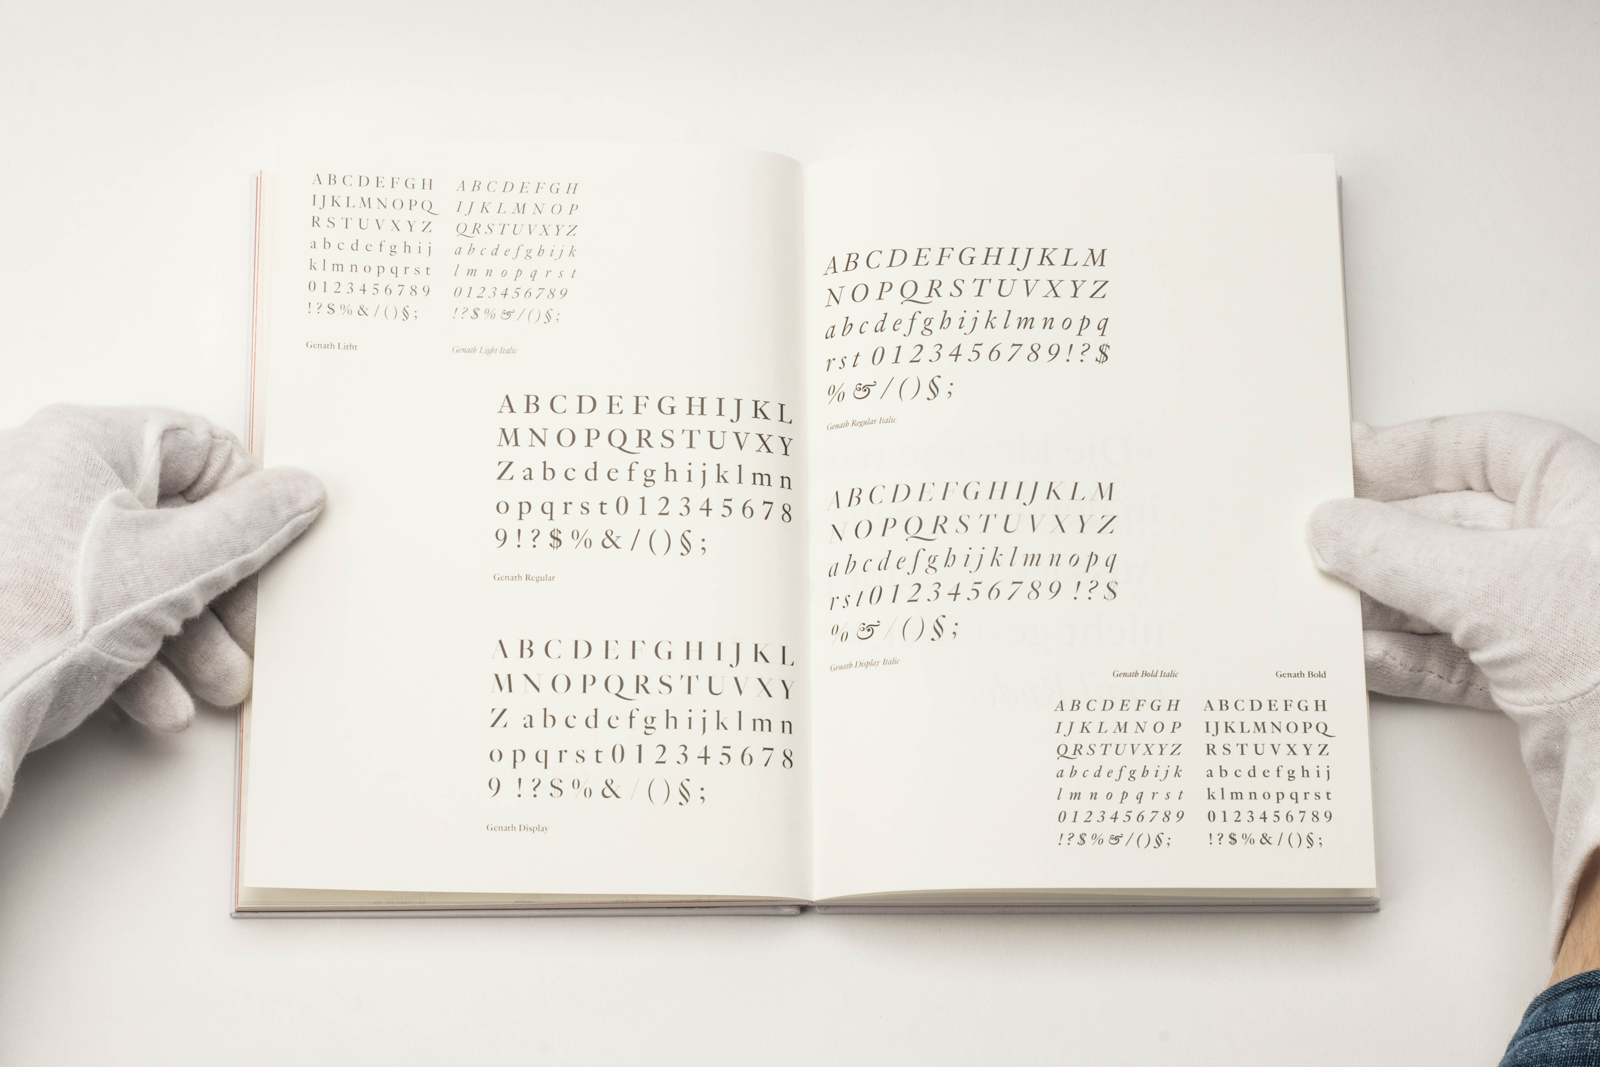 ABCDEFGH
IJKLMNOPQ
RSTUVXYZ
abcdefghij
klmnopqrst
0123456789
!?$%&/()§;
Genath Litht
ABCDEFGH
IJKLMNOP
QRSTUVXYZ
abcdefghijk
lmnopqrst
0123456789
!?$%&/()§;
Genath Light Italic
ABCDEFGHIJKL
MNOPQRSTUVXY
Zabcdefghijklmn
opqrst012345678
9!?$%&/()§;
Genath Regular
ABCDEFGHIJKL
MNOPQRSTUVXY
Z abcdefghijklmn
opqrst012345678
9 !?$%& /()§;
Genath Display
ABCDEFGHIJKLM
NOPQRSTUVXYZ
abcdefghijklmnopq
rst 0123456789!?$
%&/()§;
Genath Regular Italic
ABCDEFGHIJKLM
NOPQRSTUVXYZ
abcdefghijklmnopq
rst0123456789 !?$
%& /()§;
Genath Display Italic
Genath Bold Italic
ABCDEFGH
IJKLMNOP
QRSTUVXYZ
abcdefghijk
lmnopqrst
0123456789
!?$%&/()§;
Genath Bold
ABCDEFGH
IJKLMNOPQ
RSTUVXYZ
abcdefghij
klmnopqrst
0123456789
!?$%&/()§;